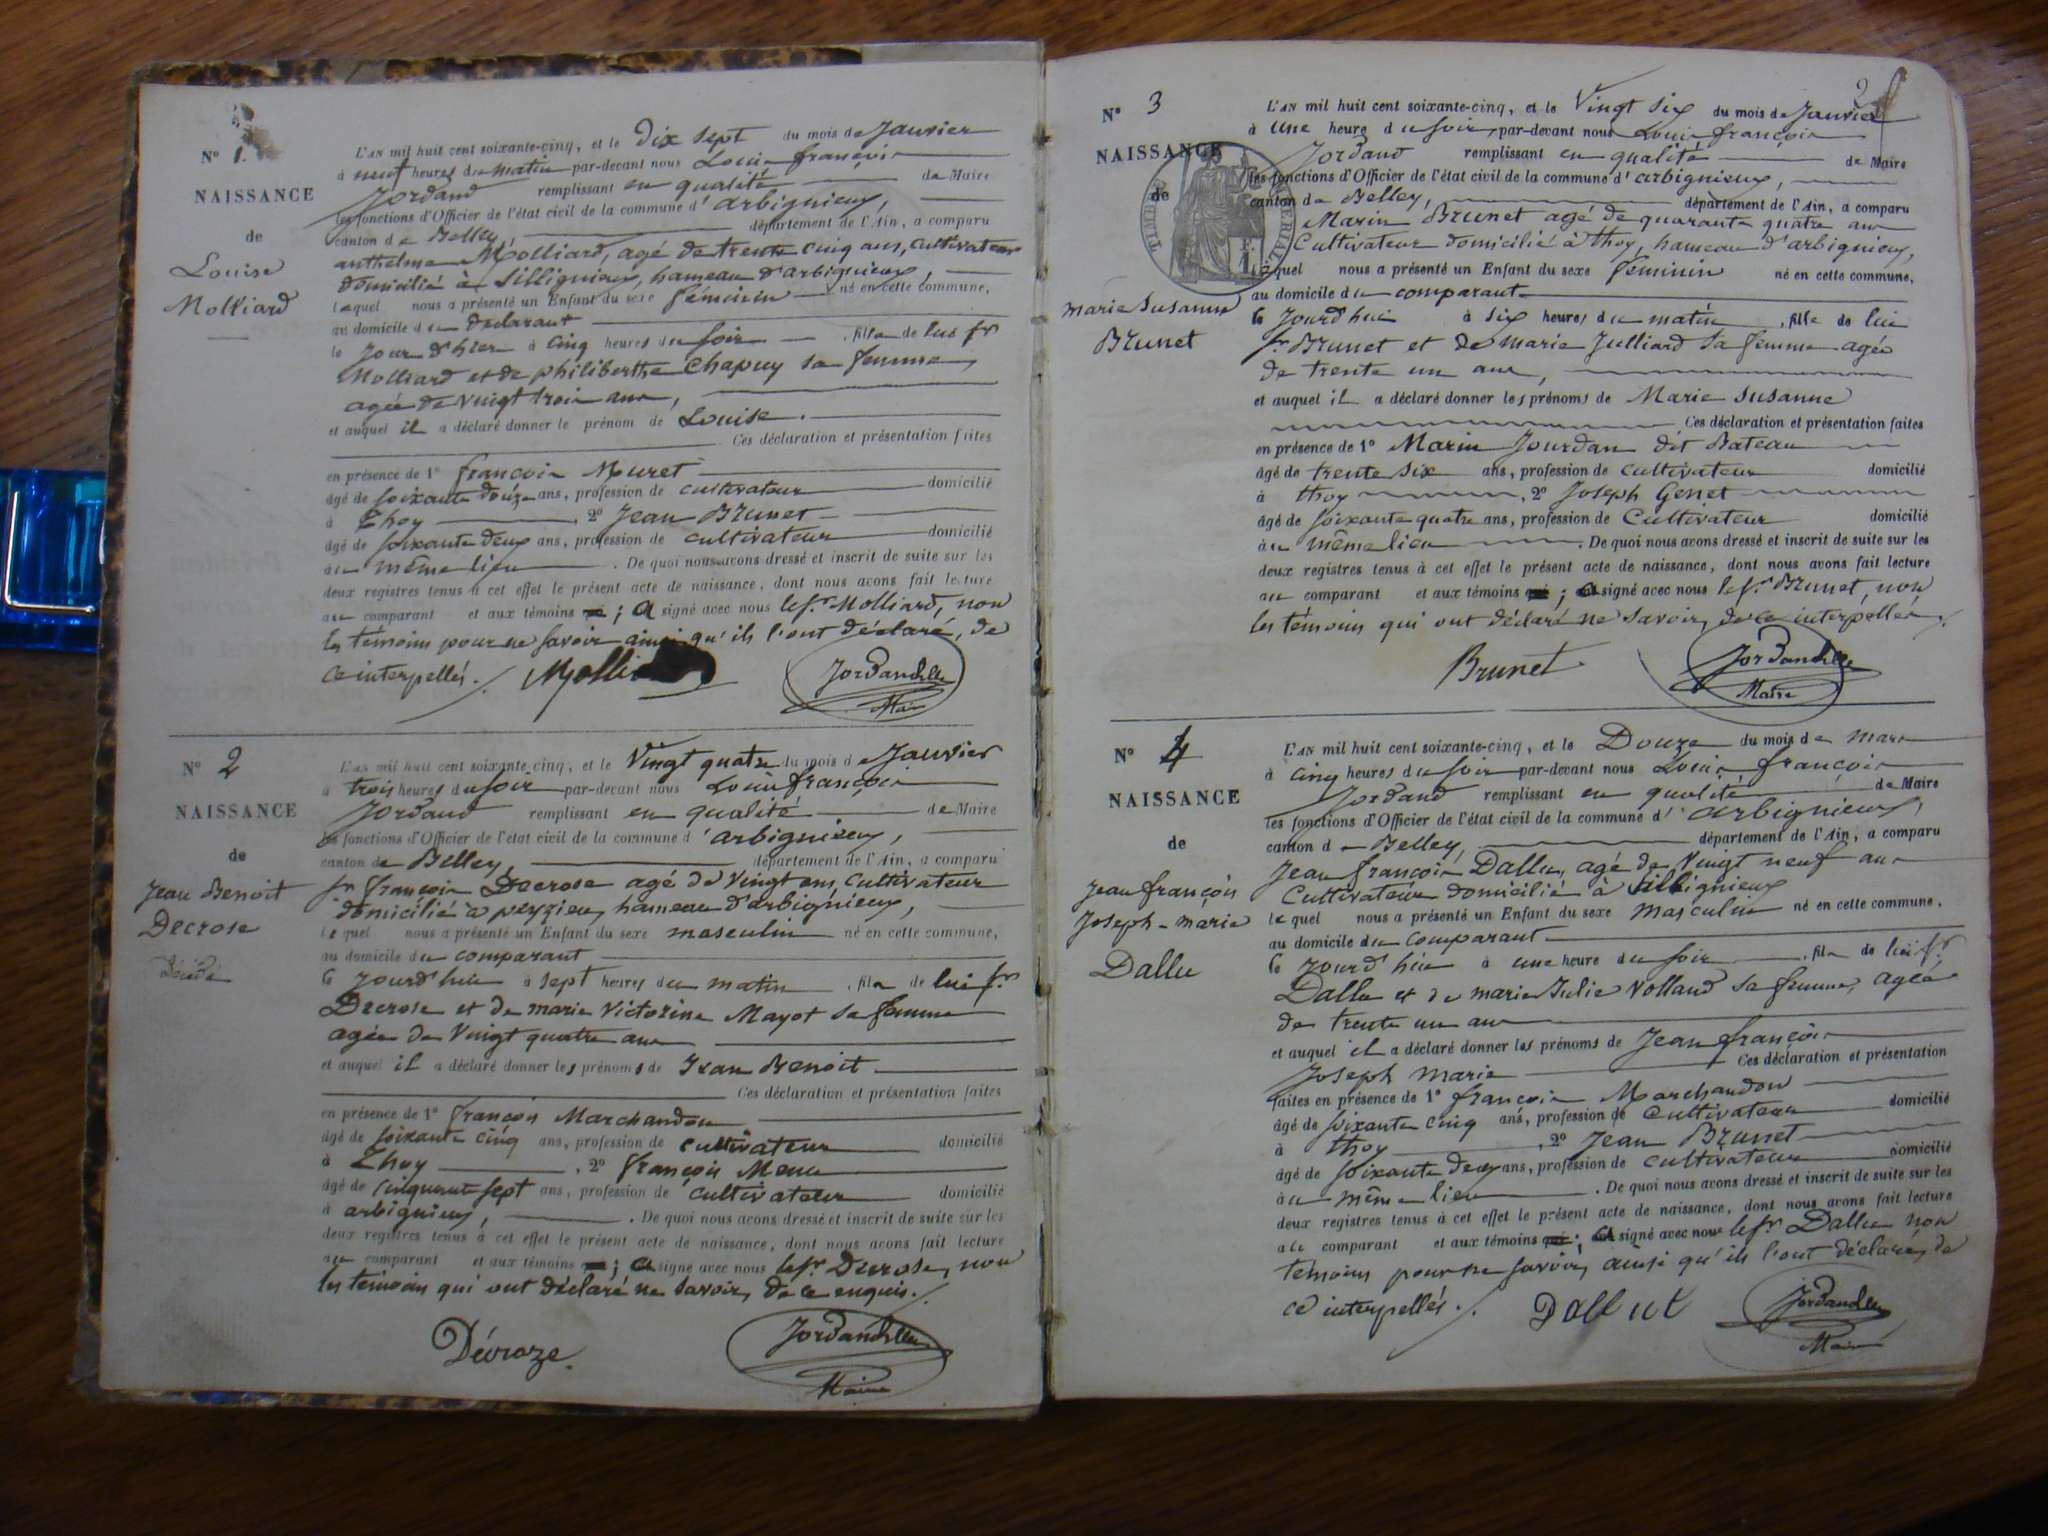 N° 1.
NAISSANCE
de
Louise
Molliard
L'AN mil huit cent soixante-cinq, et le Dix sept du mois de Janvier
à neuf heures du matin par-devant nous Louis françois
Jordand remplissant en qualité de Maire
les fonctions d'Officier de l'état civil de la commune d'arbignieux,
canton de Belley département de l'Ain, a comparu
anthelme Molliard, agé de trente cinq ans, cultivateur
domicilié à Sillignieux, hameau d'arbignieux,
lequel nous a présenté un Enfant du sexe féminin né en cette commune,
au domicile du déclarant
le jour d'hier à cinq heures du soir, fille de lui sr
Molliard et de philiberthe Chapuy sa femme
agée de vingt trois ans,
et auquel il a déclaré donner le prénom de Louise.
Ces déclaration et présentation faites
en présence de 1° françois Muret
âgé de soixante douze ans, profession de cultivateur domicilié
à Thoy, 2° Jean Brunet
âgé de soixante deux ans, profession de cultivateur domicilié
au même lieu. De quoi nous avons dressé et inscrit de suite sur les
deux registres tenus à cet effet le présent acte de naissance, dont nous avons fait lecture
au comparant et aux témoins; a signé avec nous le sr Molliard, non
les témoins pour ne savoir ainsi qu'ils l'ont déclaré, de
ce interpellés. Jordand
Maire
N° 2
NAISSANCE
de
Jean Benoit
Decrose
Décédé
L'AN mil huit cent soixante-cinq, et le Vingt quatre du mois de Janvier
à trois heures du soir par-devant nous Louis françois
Jordand remplissant en qualité de Maire
les fonctions d'Officier de l'état civil de la commune d'arbignieux,
canton de Belley, département de l'Ain, a comparu
sr françois Decrose agé de vingt ans, cultivateur
domicilié à peyzieu, hameau d'arbignieux,
lequel nous a présenté un Enfant du sexe masculin né en cette commune,
au domicile du comparant
le jourd'hui à sept heures du matin, fils de lui sr
Decrose et de marie Victorine Mayot sa femme
agée de Vingt quatre ans
et auquel il a déclaré donner les prénoms de Jean Benoit
Ces déclaration et présentation faites
en présence de 1° françois Marchandon
âgé de soixante cinq ans, profession de cultivateur domicilié
à Thoy, 2° françois
âgé de cinquante sept ans, profession de cultivateur domicilié
à arbignieux, . De quoi nous avons dressé et inscrit de suite sur les
deux registres tenus à cet effet le présent acte de naissance, dont nous avons fait lecture
au comparant et aux témoins; a signé avec nous le sr Decrose, non
les témoins qui ont déclaré ne savoir, de ce enquis.
Décroze. Jordand
Maire
N° 3
NAISSANCE
de
marie Susanne
Brunet
L'AN mil huit cent soixante-cinq, et le Vingt six du mois de Janvier
à une heure du soir, par-devant nous Louis françois
Jordand remplissant en qualité de Maire
les fonctions d'Officier de l'état civil de la commune d'arbignieux,
canton de Belley, département de l'Ain, a comparu
Marin Brunet agé de quarante quatre ans
Cultivateur domicilié à thoy, hameau d'arbignieux,
lequel nous a présenté un Enfant du sexe féminin né en cette commune,
au domicile du comparant
le jourd'hui à six heures du matin, fille de lui
sr Brunet et de marie Julliard sa femme agée
de trente un ans,
et auquel il a déclaré donner les prénoms de Marie Susanne
Ces déclaration et présentation faites
en présence de 1° Marin Jourdan dit Bateau
âgé de trente six ans, profession de cultivateur domicilié
à thoy, 2° Joseph Genet
âgé de soixante quatre ans, profession de Cultivateur domicilié
au même lieu. De quoi nous avons dressé et inscrit de suite sur les
deux registres tenus à cet effet le présent acte de naissance, dont nous avons fait lecture
au comparant et aux témoins; a signé avec nous le sr Brunet, non
les témoins qui ont déclaré ne savoir, de ce interpellés.
Brunet Jordand
Maire
N° 4
NAISSANCE
de
Jean françois
Joseph-marie
Dallu
L'AN mil huit cent soixante-cinq, et le Douze du mois de mars
à cinq heures du soir par-devant nous Louis françois
Jordand remplissant en qualité de Maire
les fonctions d'Officier de l'état civil de la commune d'arbignieux,
canton de Belley, département de l'Ain, a comparu
Jean françois Dallu, agé de Vingt neuf ans
Cultivateur domicilié à Sillignieux
lequel nous a présenté un Enfant du sexe masculin né en cette commune,
au domicile du comparant
le jourd'hui à une heure du soir, fils de lui sr
Dallu et de marie Julie Volland sa femme, agée
de trente un ans
et auquel il a déclaré donner les prénoms de Jean françois
Joseph marie Ces déclaration et présentation
faites en présence de 1° françois Marchandon
âgé de soixante cinq ans, profession de Cultivateur domicilié
à thoy, 2° Jean Brunet
âgé de soixante deux ans, profession de cultivateur domicilié
au même lieu. De quoi nous avons dressé et inscrit de suite sur les
deux registres tenus à cet effet le présent acte de naissance, dont nous avons fait lecture
au comparant et aux témoins; a signé avec nous le sr Dallu non
témoins pour ne savoir, ainsi qu'ils l'ont déclaré, de
ce interpellés. Jordand
Maire